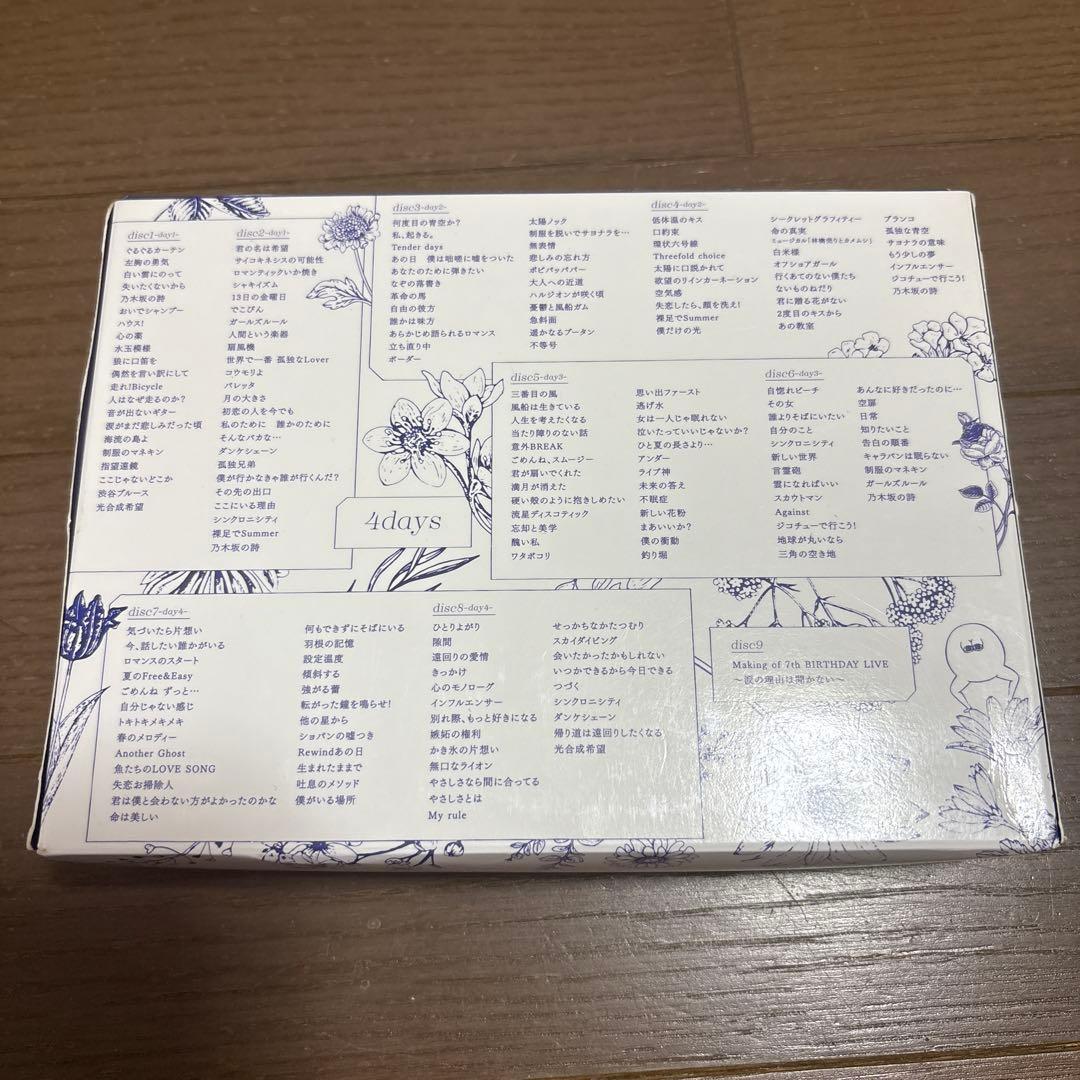 disc1-day1-
ぐるぐるカーテン
左胸の勇気
白い雲にのって
失いたくないから
乃木坂の詩
おいでシャンプー
ハウス!
心の薬
水玉模様
狼に口笛を
偶然を言い訳にして
走れ!Bicycle
人はなぜ走るのか?
音が出ないギター
涙がまだ悲しみだった頃
海流の島よ
制服のマネキン
指望遠鏡
ここじゃないどこか
渋谷ブルース
光合成希望
disc2-day1-
君の名は希望
サイコキネシスの可能性
ロマンティックいか焼き
シャキイズム
13日の金曜日
でこぴん
ガールズルール
人間という楽器
扇風機
世界で一番 孤独なLover
コウモリよ
バレッタ
月の大きさ
初恋の人を今でも
私のために 誰かのために
そんなバカな…
ダンケシェーン
孤独兄弟
僕が行かなきゃ誰が行くんだ?
その先の出口
ここにいる理由
シンクロニシティ
裸足でSummer
乃木坂の詩
disc3-day2-
何度目の青空か?
私、起きる。
Tender days
あの日 僕は咄嗟に嘘をついた
あなたのために弾きたい
なぞの落書き
革命の馬
自由の彼方
誰かは味方
あらかじめ語られるロマンス
立ち直り中
ボーダー
太陽ノック
制服を脱いでサヨナラを…
無表情
悲しみの忘れ方
ポピパッパパー
大人への近道
ハルジオンが咲く頃
憂鬱と風船ガム
急斜面
遥かなるブータン
不等号
disc4-day2-
低体温のキス
口約束
環状六号線
Threefold choice
太陽に口説かれて
欲望のリインカーネーション
空気感
失恋したら、顔を洗え!
裸足でSummer
僕だけの光
シークレットグラフィティー
命の真実
ミュージカル「林檎売りとカメムシ」
白米様
オフショアガール
行くあてのない僕たち
ないものねだり
君に贈る花がない
2度目のキスから
あの教室
ブランコ
孤独な青空
サヨナラの意味
もう少しの夢
インフルエンサー
ジコチューで行こう!
乃木坂の詩
disc5-day3-
三番目の風
風船は生きている
人生を考えたくなる
当たり障りのない話
意外BREAK
ごめんね、スムージー
君が扇いでくれた
満月が消えた
硬い殻のように抱きしめたい
流星ディスコティック
忘却と美学
醜い私
ワタボコリ
思い出ファースト
逃げ水
女は一人じゃ眠れない
泣いたっていいじゃないか?
ひと夏の長さより…
アンダー
ライブ神
未来の答え
不眠症
新しい花粉
まあいいか?
僕の衝動
釣り堀
disc6-day3-
自惚れビーチ
その女
誰よりそばにいたい
自分のこと
シンクロニシティ
新しい世界
言霊砲
雲になればいい
スカウトマン
Against
ジコチューで行こう!
地球が丸いなら
三角の空き地
あんなに好きだったのに…
空扉
日常
知りたいこと
告白の順番
キャラバンは眠らない
制服のマネキン
ガールズルール
乃木坂の詩
4days
disc7-day4-
気づいたら片想い
今、話したい誰かがいる
ロマンスのスタート
夏のFree&Easy
ごめんね ずっと…
自分じゃない感じ
トキトキメキメキ
春のメロディー
Another Ghost
魚たちのLOVE SONG
失恋お掃除人
君は僕と会わない方がよかったのかな
命は美しい
何もできずにそばにいる
羽根の記憶
設定温度
傾斜する
強がる蕾
転がった鐘を鳴らせ!
他の星から
ショパンの嘘つき
Rewindあの日
生まれたままで
吐息のメソッド
僕がいる場所
disc8-day4-
ひとりよがり
隙間
遠回りの愛情
きっかけ
心のモノローグ
インフルエンサー
別れ際、もっと好きになる
嫉妬の権利
かき氷の片想い
無口なライオン
やさしさなら間に合ってる
やさしさとは
My rule
せっかちなかたつむり
スカイダイビング
会いたかったかもしれない
いつかできるから今日できる
つづく
シンクロニシティ
ダンケシェーン
帰り道は遠回りしたくなる
光合成希望
disc9
Making of 7th BIRTHDAY LIVE
～涙の理由は聞かない～